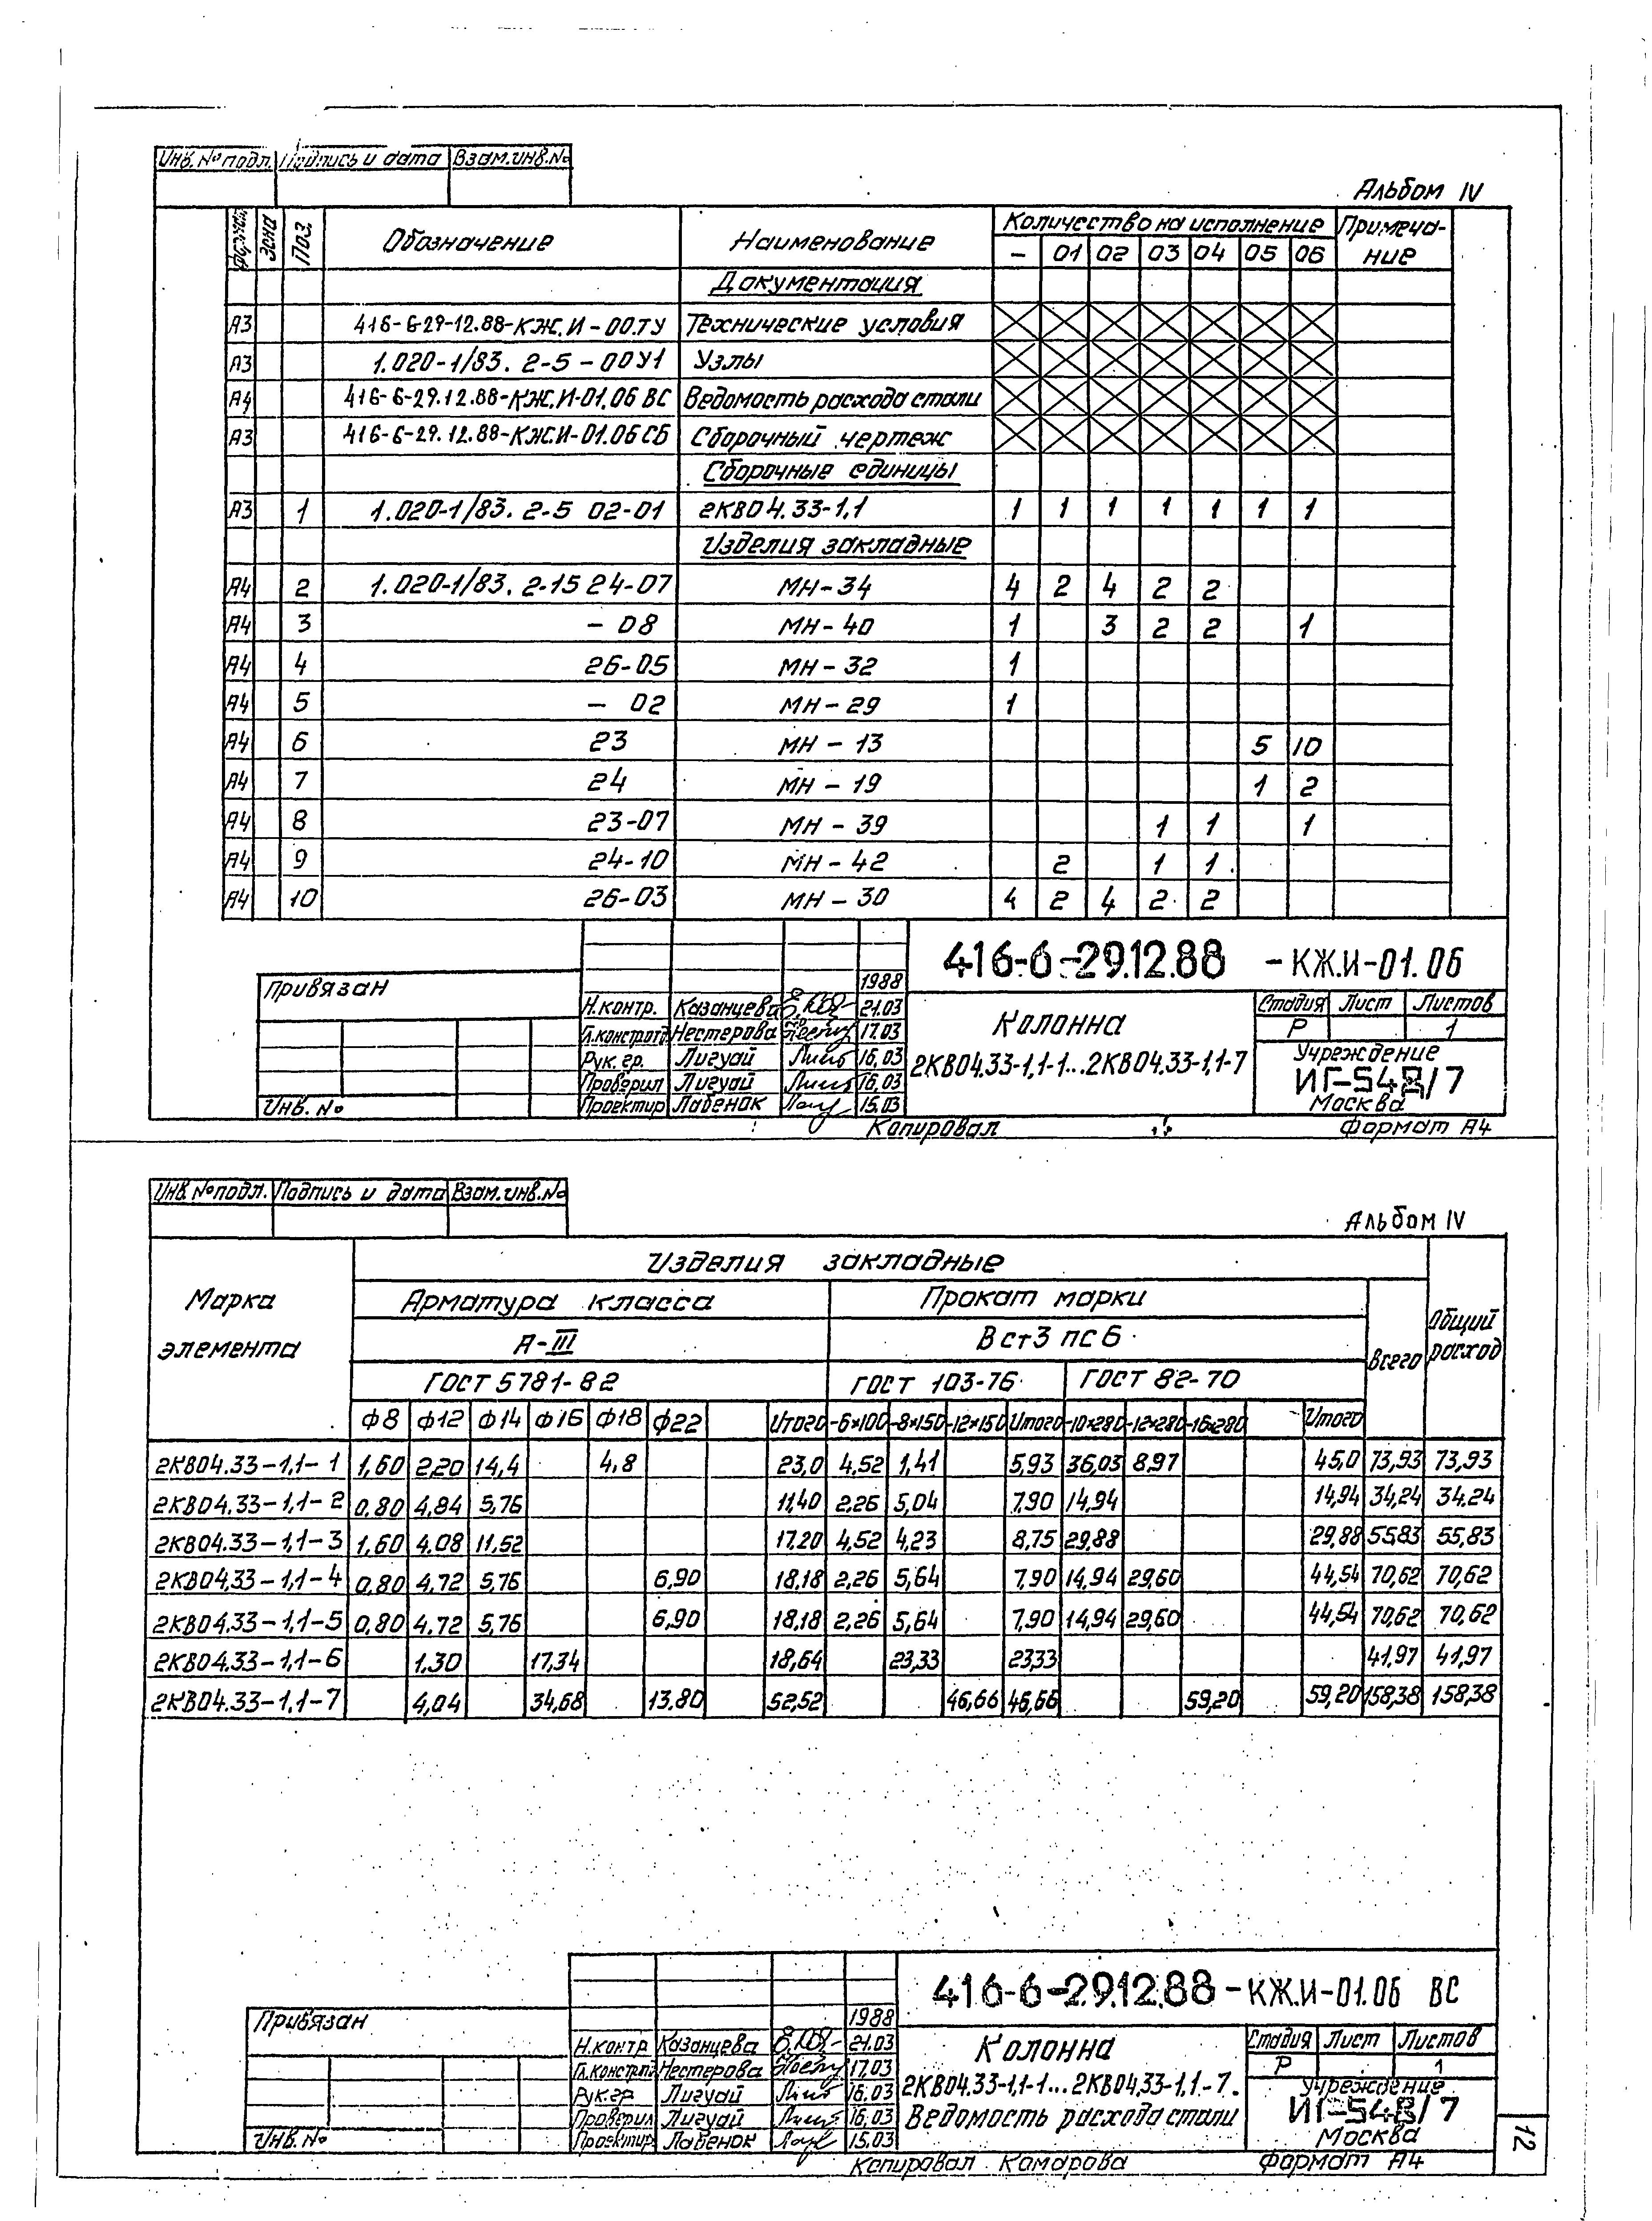 Инв. № подл. Подпись и дата Взам. инв. №
Альбом IV
Формат Зона Поз. Обозначение Наименование Количество на исполнение Примеча-
ние
– 01 02 03 04 05 06
Документация
А3 416-6-29-12.88-КЖ.И-00.ТУ Технические условия
А3 1.020-1/83. 2-5-00У1 Узлы
А4 416-6-29.12.88-КЖ.И-01.06 ВС Ведомость расхода стали
А3 416-6-29.12.88-КЖ.И-01.06 СБ Сборочный чертеж
Сборочные единицы
А3 1 1.020-1/83. 2-5 02-01 2КВ04.33-1.1 1 1 1 1 1 1 1
Изделия закладные
А4 2 1.020-1/83. 2-15 24-07 МН-34 4 2 4 2 2
А4 3 - 08 МН-40 1 3 2 2 1
А4 4 26-05 МН-32 1
А4 5 - 02 МН-29 1
А4 6 23 МН-13 5 10
А4 7 24 МН-19 1 2
А4 8 23-07 МН-39 1 1 1
А4 9 24-10 МН-42 2 1 1
А4 10 26-03 МН-30 4 2 4 2 2
416-6-29.12.88 -КЖ.И-01.06
Привязан
1988
Н.контр. Казанцева 21.03
Гл.констр.отд Нестерова 17.03
Рук. гр. Лигуай 16.03
Проверил Лигуай 16.03
Проектир Лабенок 15.03
Инв. №
Колонна
2КВ04.33-1,1-1...2КВ04.33-1,1-7
Стадия Лист Листов
Р 1
Учреждение
ИГ-548/7
Москва
Копировал Формат А4
Инв. № подл. Подпись и дата Взам. инв. №
Альбом IV
Марка
элемента
Изделия закладные
Общий
расход
Арматура класса Прокат марки Всего
А-III Вст3 пс6
ГОСТ 5781-82 ГОСТ 103-76 ГОСТ 82-70
Ф8 Ф12 Ф14 Ф16 Ф18 Ф22 Итого -6×100 -8×150 -12×150 Итого -10×280 -12×280 -16×280 Итого
2КВ04.33-1,1-1 1,60 2,20 14,4 4,8 23,0 4,52 1,41 5,93 36,03 8,97 45,0 73,93 73,93
2КВ04.33-1,1-2 0,80 4,84 5,76 11,40 2,26 5,04 7,90 14,94 14,94 34,24 34,24
2КВ04.33-1,1-3 1,60 4,08 11,52 17,20 4,52 4,23 8,75 29,88 29,88 55,83 55,83
2КВ04.33-1,1-4 0,80 4,72 5,76 6,90 18,18 2,26 5,64 7,90 14,94 29,60 44,54 70,62 70,62
2КВ04.33-1,1-5 0,80 4,72 5,76 6,90 18,18 2,26 5,64 7,90 14,94 29,60 44,54 70,62 70,62
2КВ04.33-1,1-6 1,30 17,34 18,64 23,33 23,33 41,97 41,97
2КВ04.33-1,1-7 4,04 34,68 13,80 52,52 46,66 46,66 59,20 59,20 158,38 158,38
416-6-29.12.88-КЖ.И-01.06 ВС
Привязан
1988
Н.контр Казанцева 21.03
Гл.констр.отд Нестерова 17.03
Рук.гр Лигуай 16.03
Проверил Лигуай 16.03
Проектир Лабенок 15.03
Инв. №
Колонна
2КВ04.33-1,1-1...2КВ04.33-1,1-7.
Ведомость расхода стали
Стадия Лист Листов
Р 1
Учреждение
ИГ-548/7
Москва
Копировал Комарова Формат А4
12